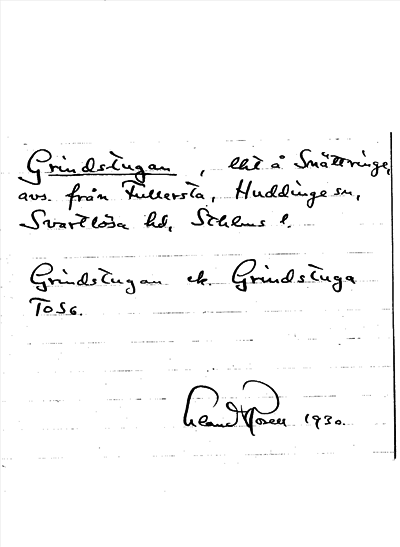 Grindstugan, lht å Snättringe,
avs. från Fullersta, Huddinge sn,
Svartlösa hd, Sthlms l.
Grindstugan ek. Grindstuga
To56.
1930.